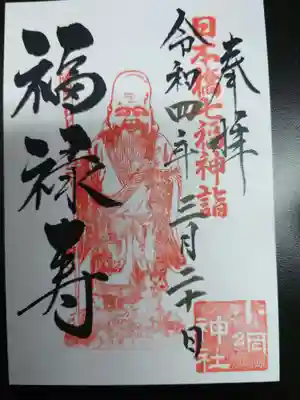 奉拝
日本橋七福神詣
令和四年三月二十日
福禄寿
小網神社